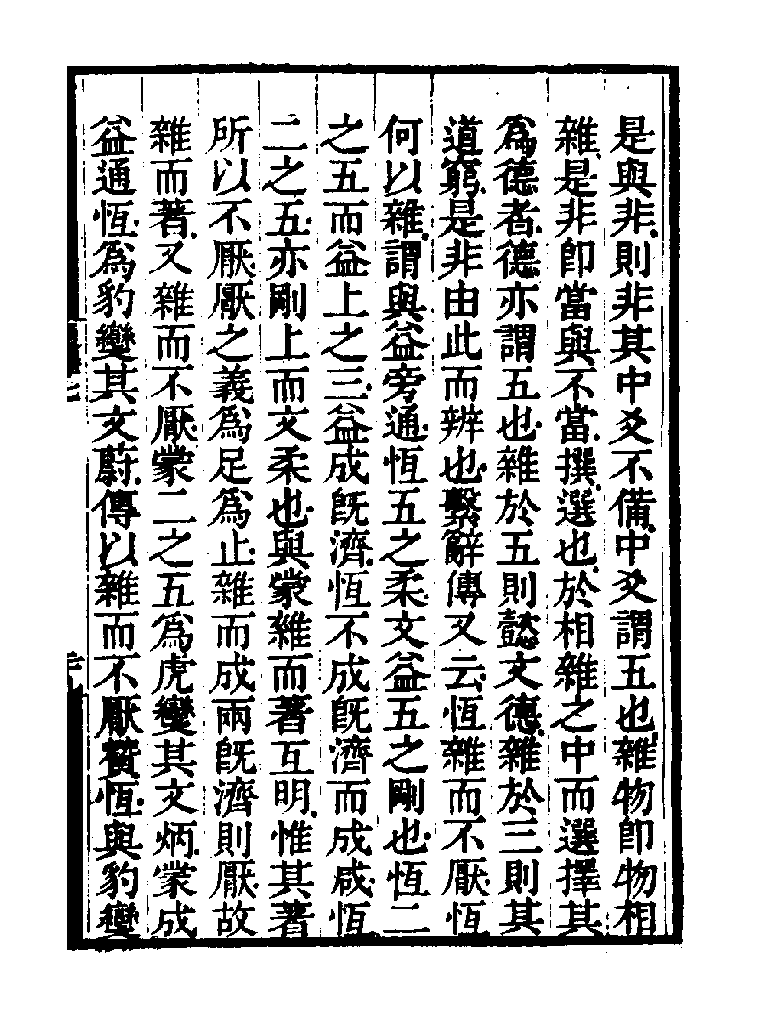 是與非則非其中爻不備中爻謂五也雜物卽物相
雜是非卽當與不當撰選也於相雜之中而選擇其
爲德者德亦謂五也雜於五則懿文德雜於三則其
道窮是非由此而辨也繫辭傳又云恆雜而不厭恆
何以雜謂與益旁通恆五之柔文益五之剛也恆二
之五而益上之三益成旣濟恆不成旣濟而成咸恆
二之五亦剛上而文柔也與蒙雜而著互明惟其著
所以不厭厭之義爲足爲止雜而成兩旣濟則厭故
雜而著又雜而不厭蒙二之五爲虎變其文炳蒙成
益通恆爲豹變其文蔚傳以雜而不厭贊恆與豹變